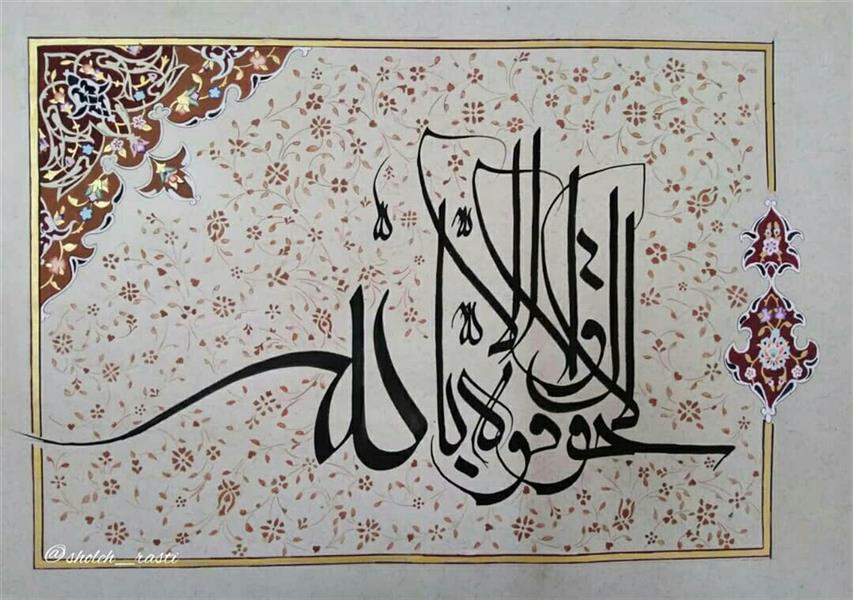 لا حول ولا قوة إلا بالله
@sholeh_rasti